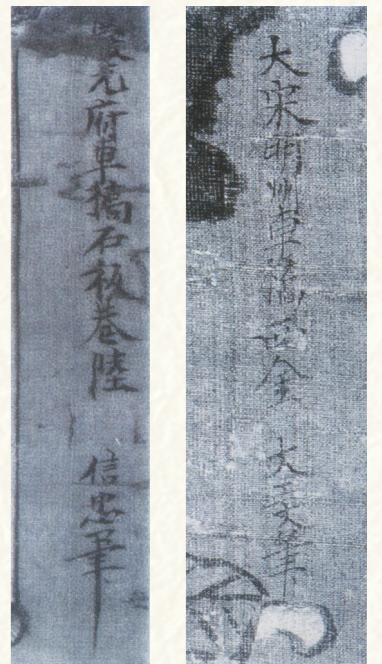 大宋明州車橋西金 大受筆
慶元府車橋石板巷陸 信忠筆